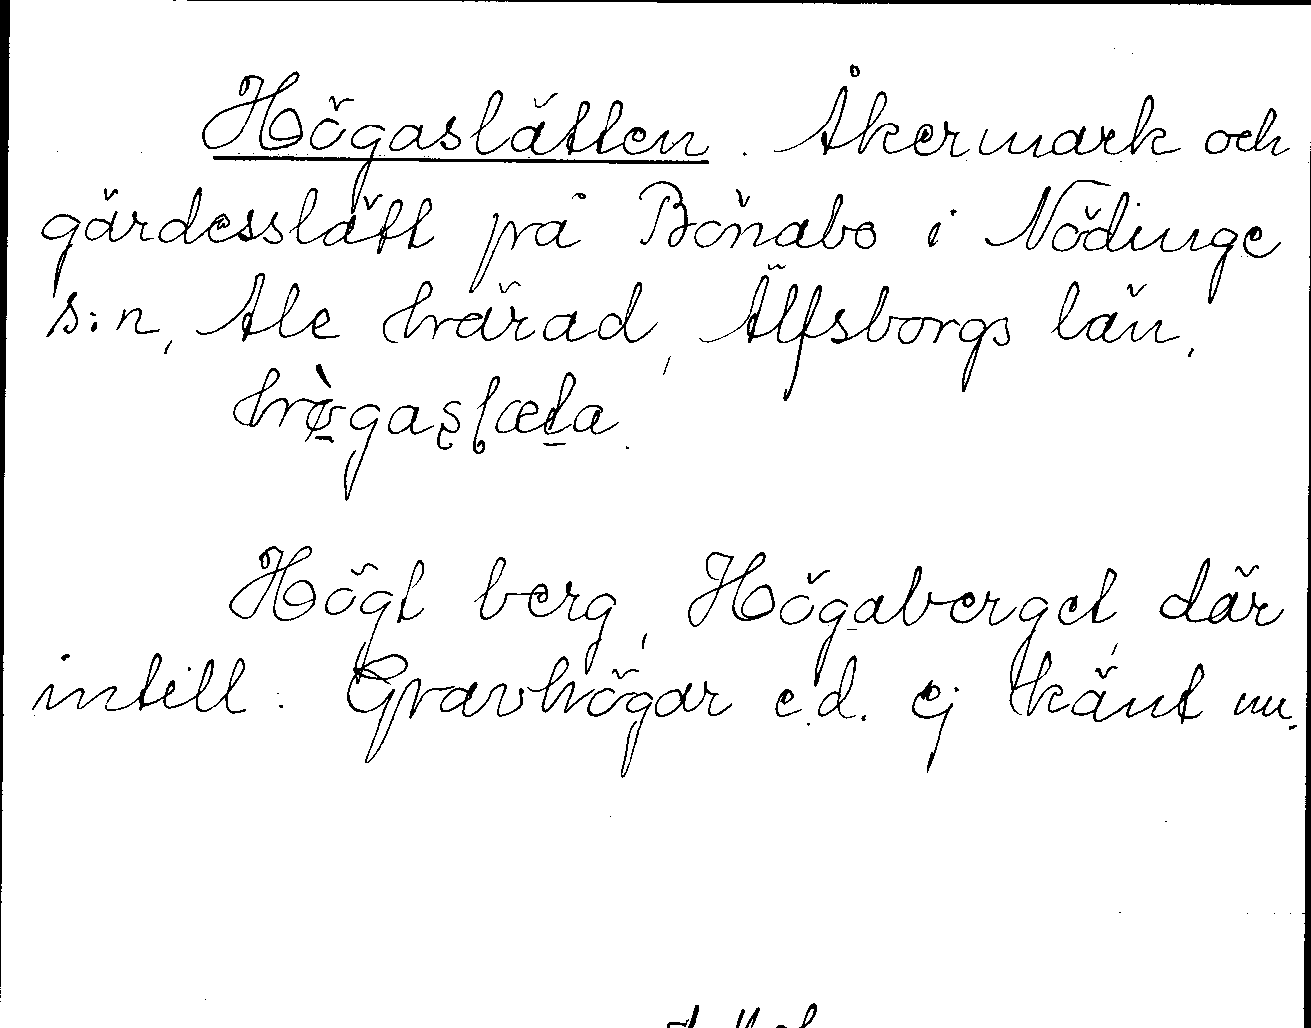 Högaslätten. Åkermark och
gärdesslätt på Bönabo i Nödinge
s:n, Ale härad, Älfsborgs län.
Högt berg, Högaberget där
intill. Gravhögar e.d. ej känt nu.